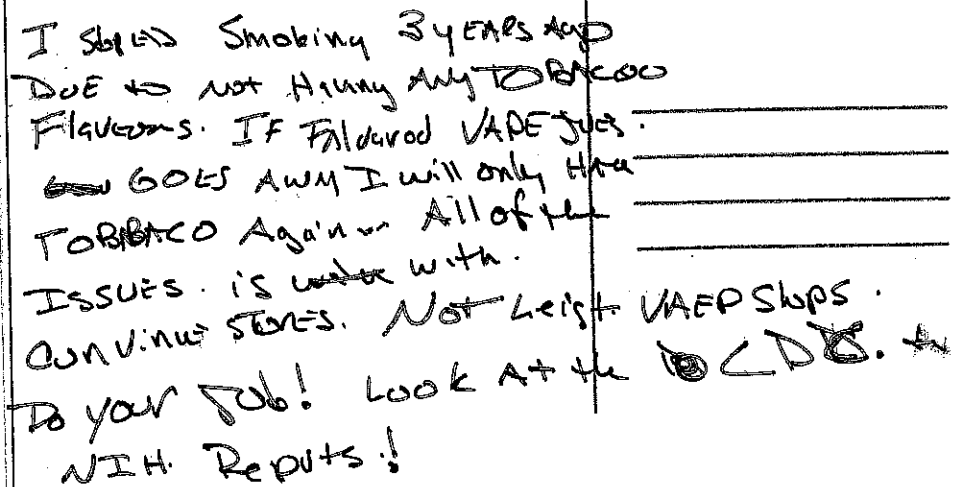 I stoped Smoking 3 yEARS Ago
DUE to not Having Any TOBACOO
Flaverns. IF Faldavod VAPE Jues.
GOES AWAY I will only Have
TOBBACO Again All of the
ISSUES. is with.
Convinue STORES. Not Leigt VAEP Shops.
Do your Job! Look At the CDC.
NIH. Reputs!